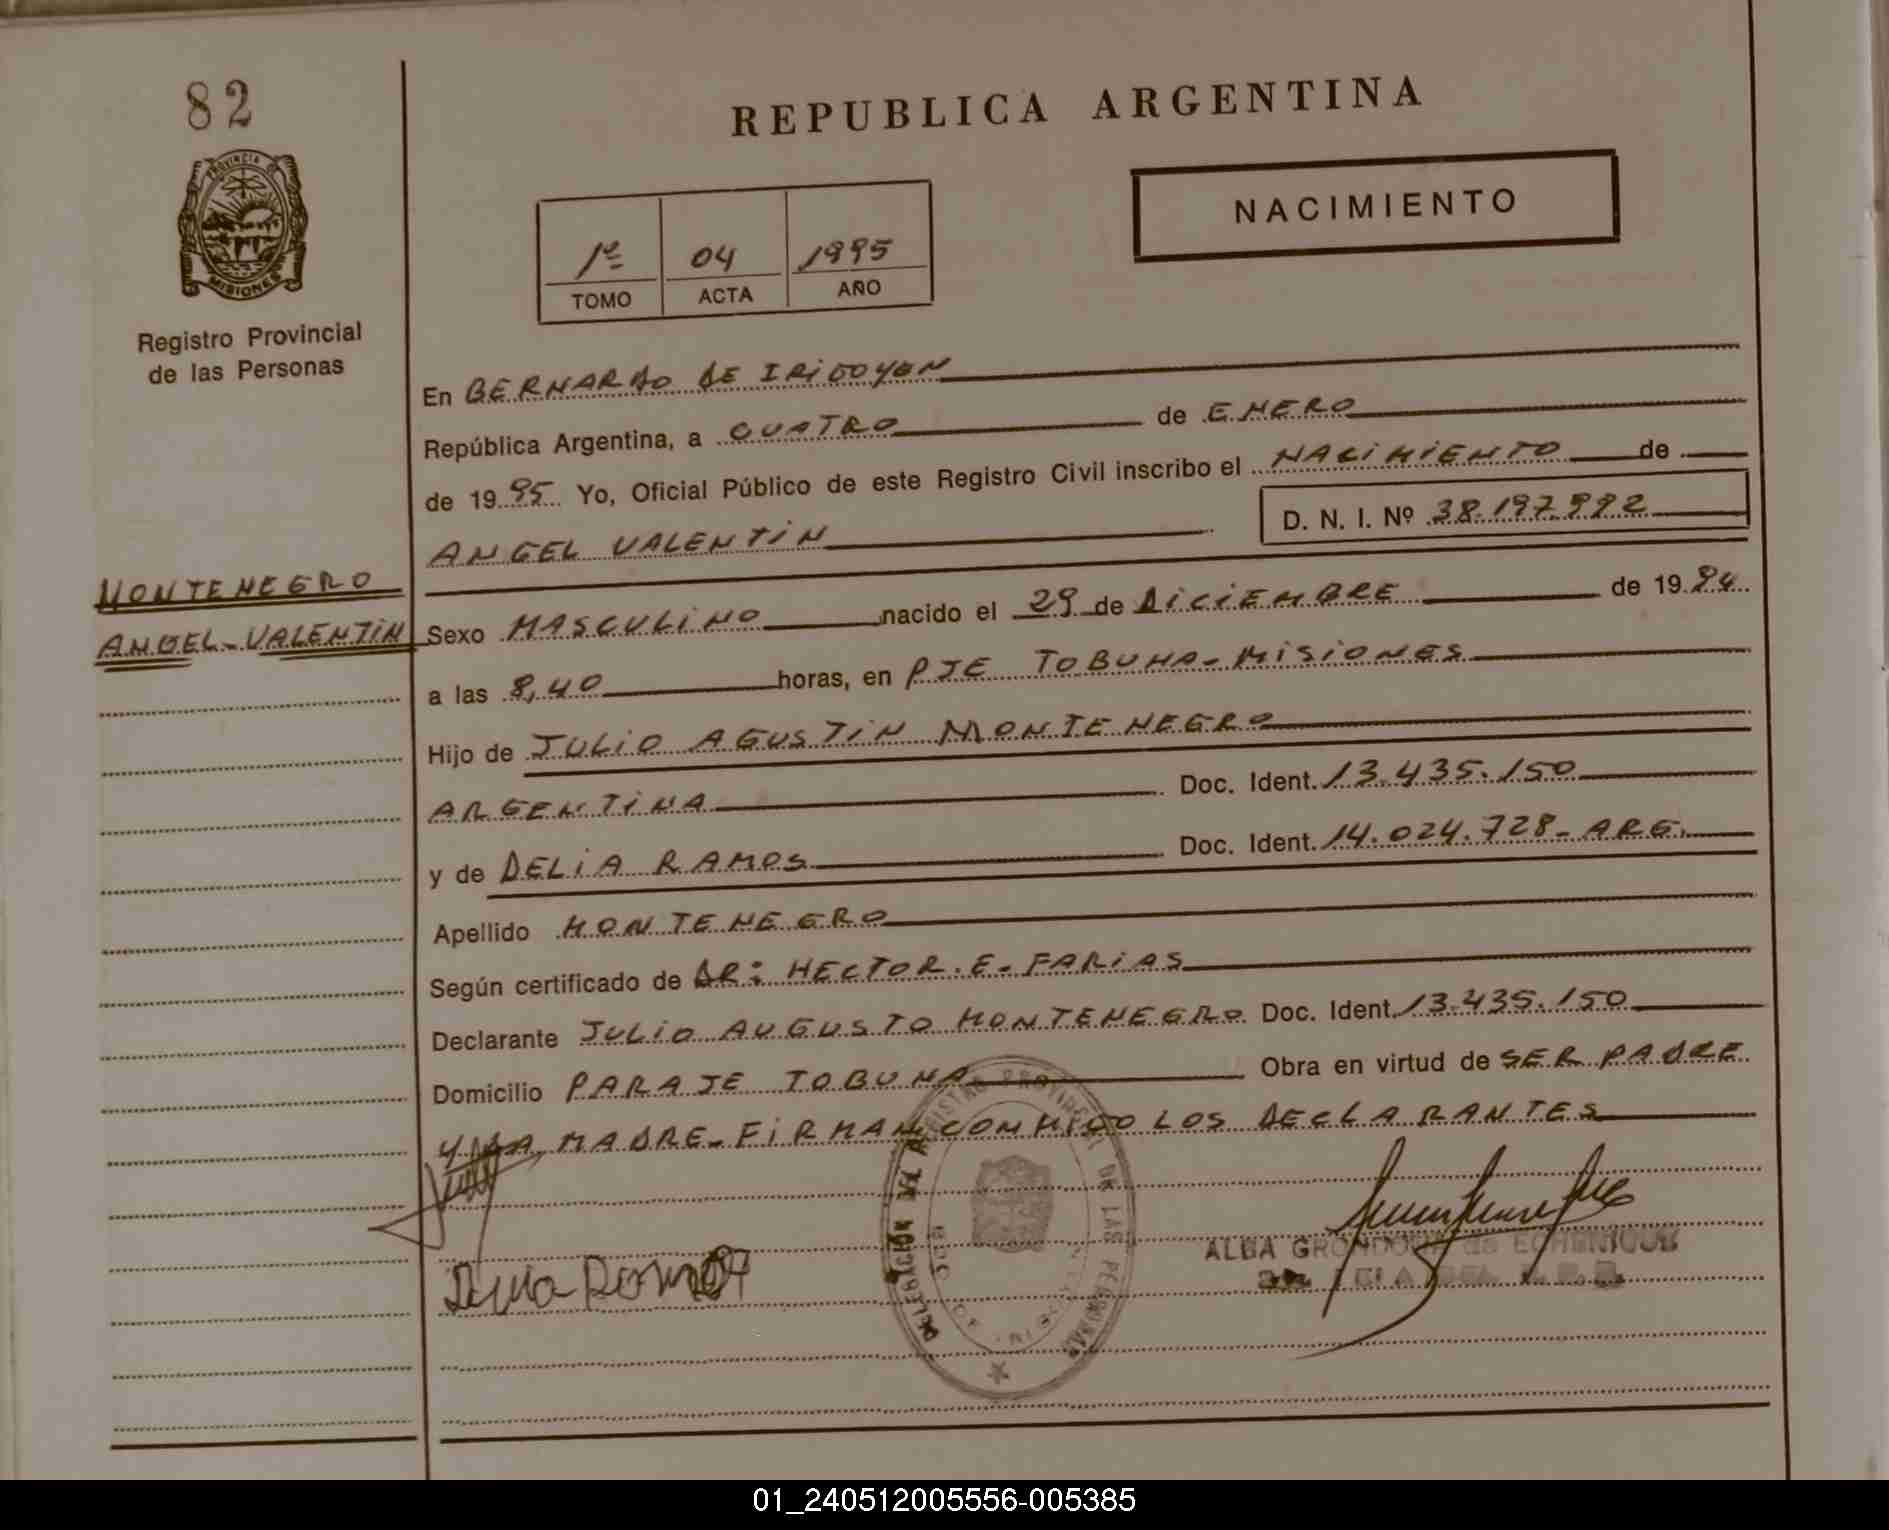 82
PROVINCIA DE
MISIONES
Registro Provincial
de las Personas
MONTENEGRO
ANGEL-VALENTIN
REPUBLICA ARGENTINA
NACIMIENTO
1º 04 1995
TOMO ACTA AÑO
En BERNARDO DE IRIGOYEN
República Argentina, a CUATRO de ENERO
de 1995 Yo, Oficial Público de este Registro Civil inscribo el NACIMIENTO de
ANGEL VALENTIN D. N. I. Nº 38.197.992
Sexo MASCULINO nacido el 29 de DICIEMBRE de 1994
a las 8,40 horas, en PJE TOBUNA-MISIONES
Hijo de JULIO AGUSTIN MONTENEGRO
ARGENTINA Doc. Ident. 13.435.150
y de DELIA RAMOS Doc. Ident. 14.024.728- ARG.
Apellido MONTENEGRO
Según certificado de DR: HECTOR.E-FARIAS
Declarante JULIO AUGUSTO MONTENEGRO Doc. Ident. 13.435.150
Domicilio PARAJE TOBUNA Obra en virtud de SER PADRE
Y LA MADRE-FIRMAN CONMIGO LOS DECLARANTES
DELEGACION DEL REGISTRO PROVINCIAL DE LAS PERSONAS
ALBA GRONDONA de ECHENIQUE
01_240512005556-005385